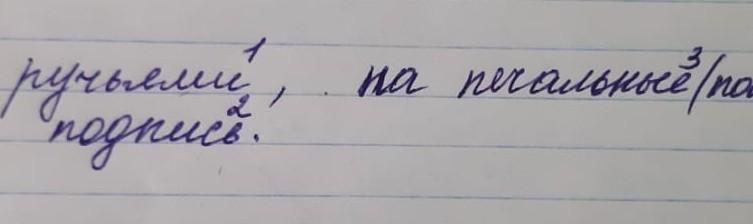 ручьями¹, на печальные³/по
подпись².